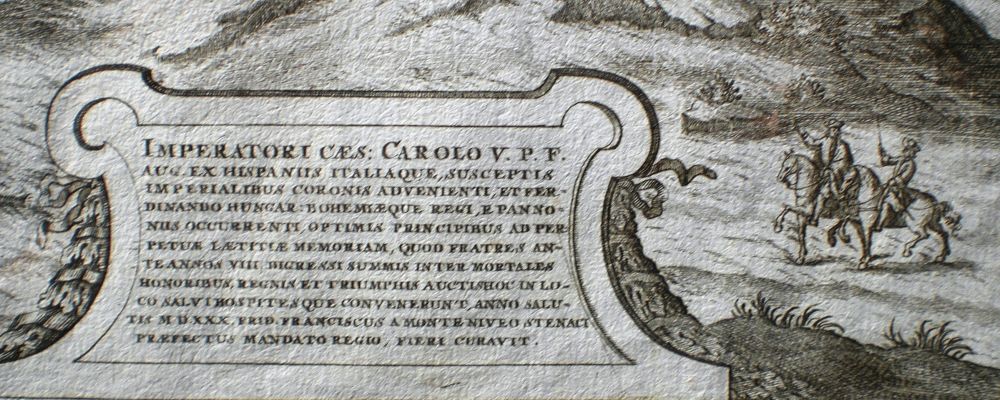 IMPERATORI CÆS: CAROLO V. P. F.
AUG. EX HISPANIIS ITALIAQUE, SUSCEPTIS
IMPERIALIBUS CORONIS ADVENIENTI, ET FER-
DINANDO HUNGAR: BOHEMIÆQUE REGI, E PANNO-
NIIS OCCURRENTI, OPTIMIS PRINCIPIBUS AD PER-
PETUÆ LÆTITIÆ MEMORIAM, QUOD FRATRES AN-
TE ANNOS VIII DIGRESSI SUMMIS INTER MORTALES
HONORIBUS, REGNIS ET TRIUMPHIS AUCTIS HOC IN LO-
CO SALVI HOSPITES QUE CONVENERUNT, ANNO SALU-
TIS M D XXX. FRID. FRANCISCUS A MONTE NIVEO STENACI
PRÆFECTUS MANDATO REGIO, FIERI CURAVIT.